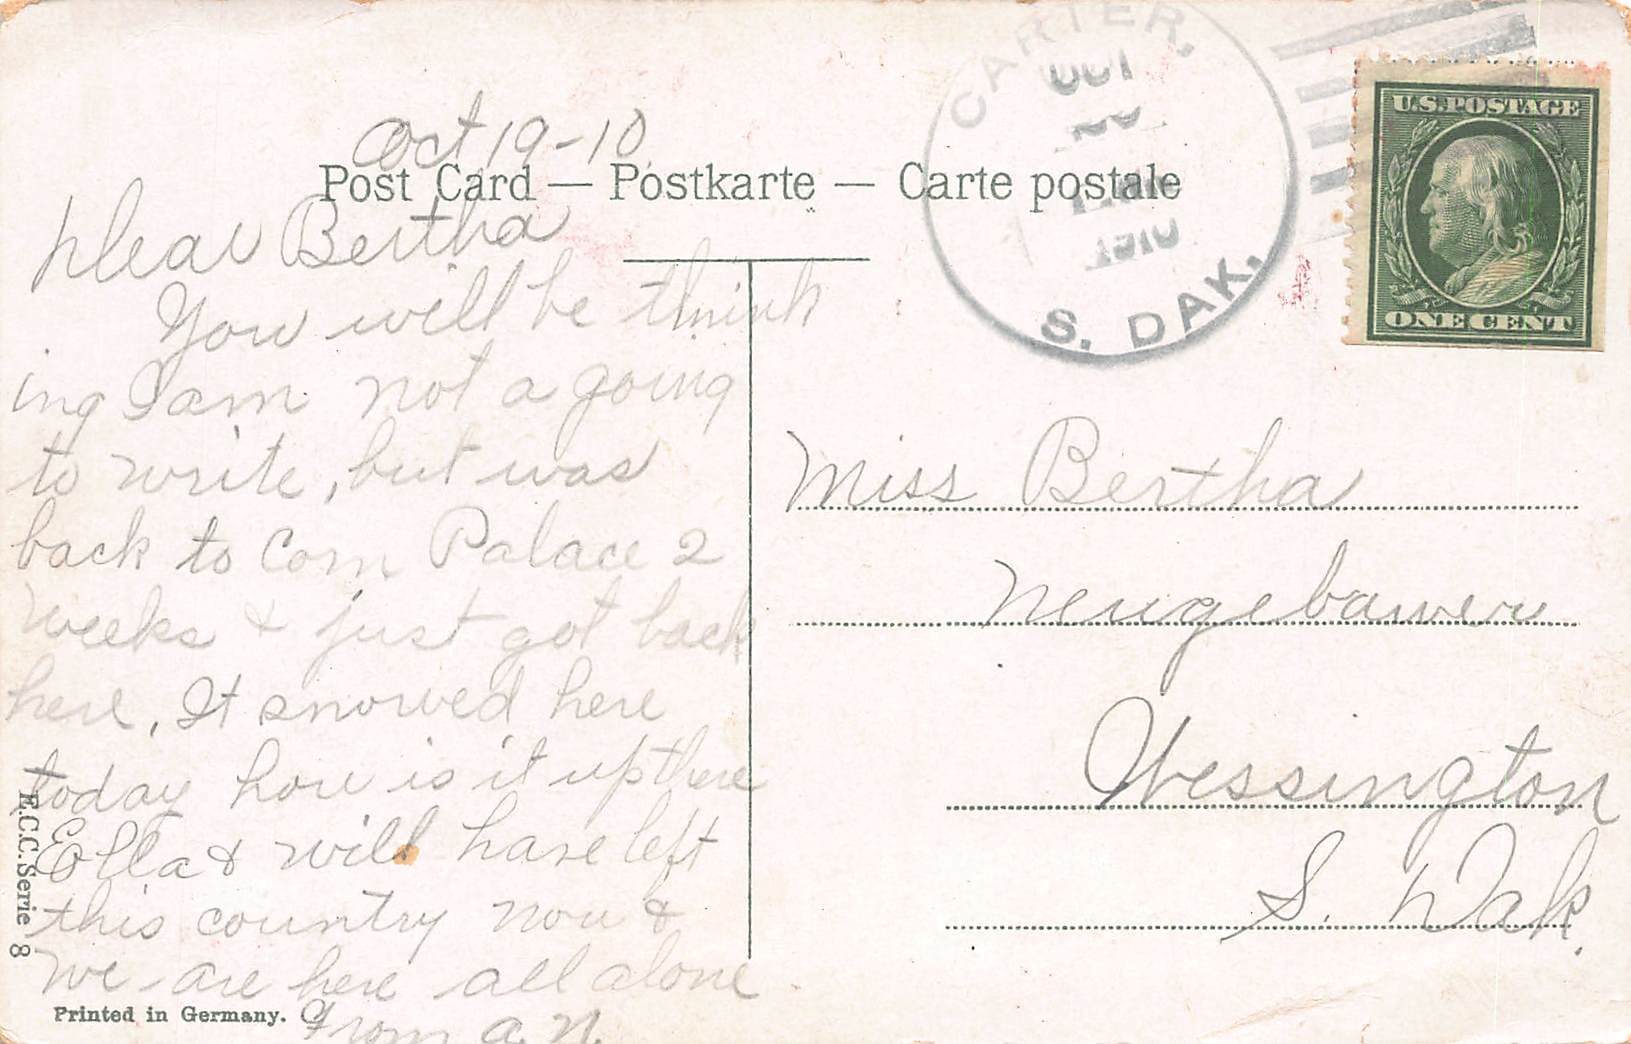 CARTER,
OCT
1910
S. DAK.
U.S. POSTAGE
ONE CENT
Oct 19-10
Post Card — Postkarte — Carte postale
Dear Bertha
You will be think
ing I am not a going
to write, but was
back to Corn Palace 2
weeks & just got back
here, It snowed here
today how is it up there
Ella & Will have left
this country now &
we are here all alone
From A. N.
Miss Bertha
Neugebauer
Wessington
S. Dak.
E.C.C. Serie 8
Printed in Germany.